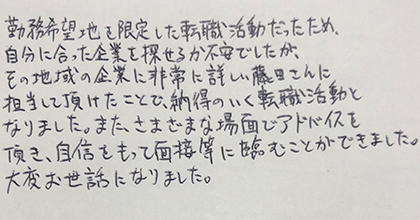 勤務希望地を限定した転職活動だったため、
自分に合った企業を探せるか不安でしたが、
その地域の企業に非常に詳しい藤田さんに
担当して頂けたことで、納得のいく転職活動と
なりました。また、さまざまな場面でアドバイスを
頂き、自信をもって面接等に臨むことができました。
大変お世話になりました。